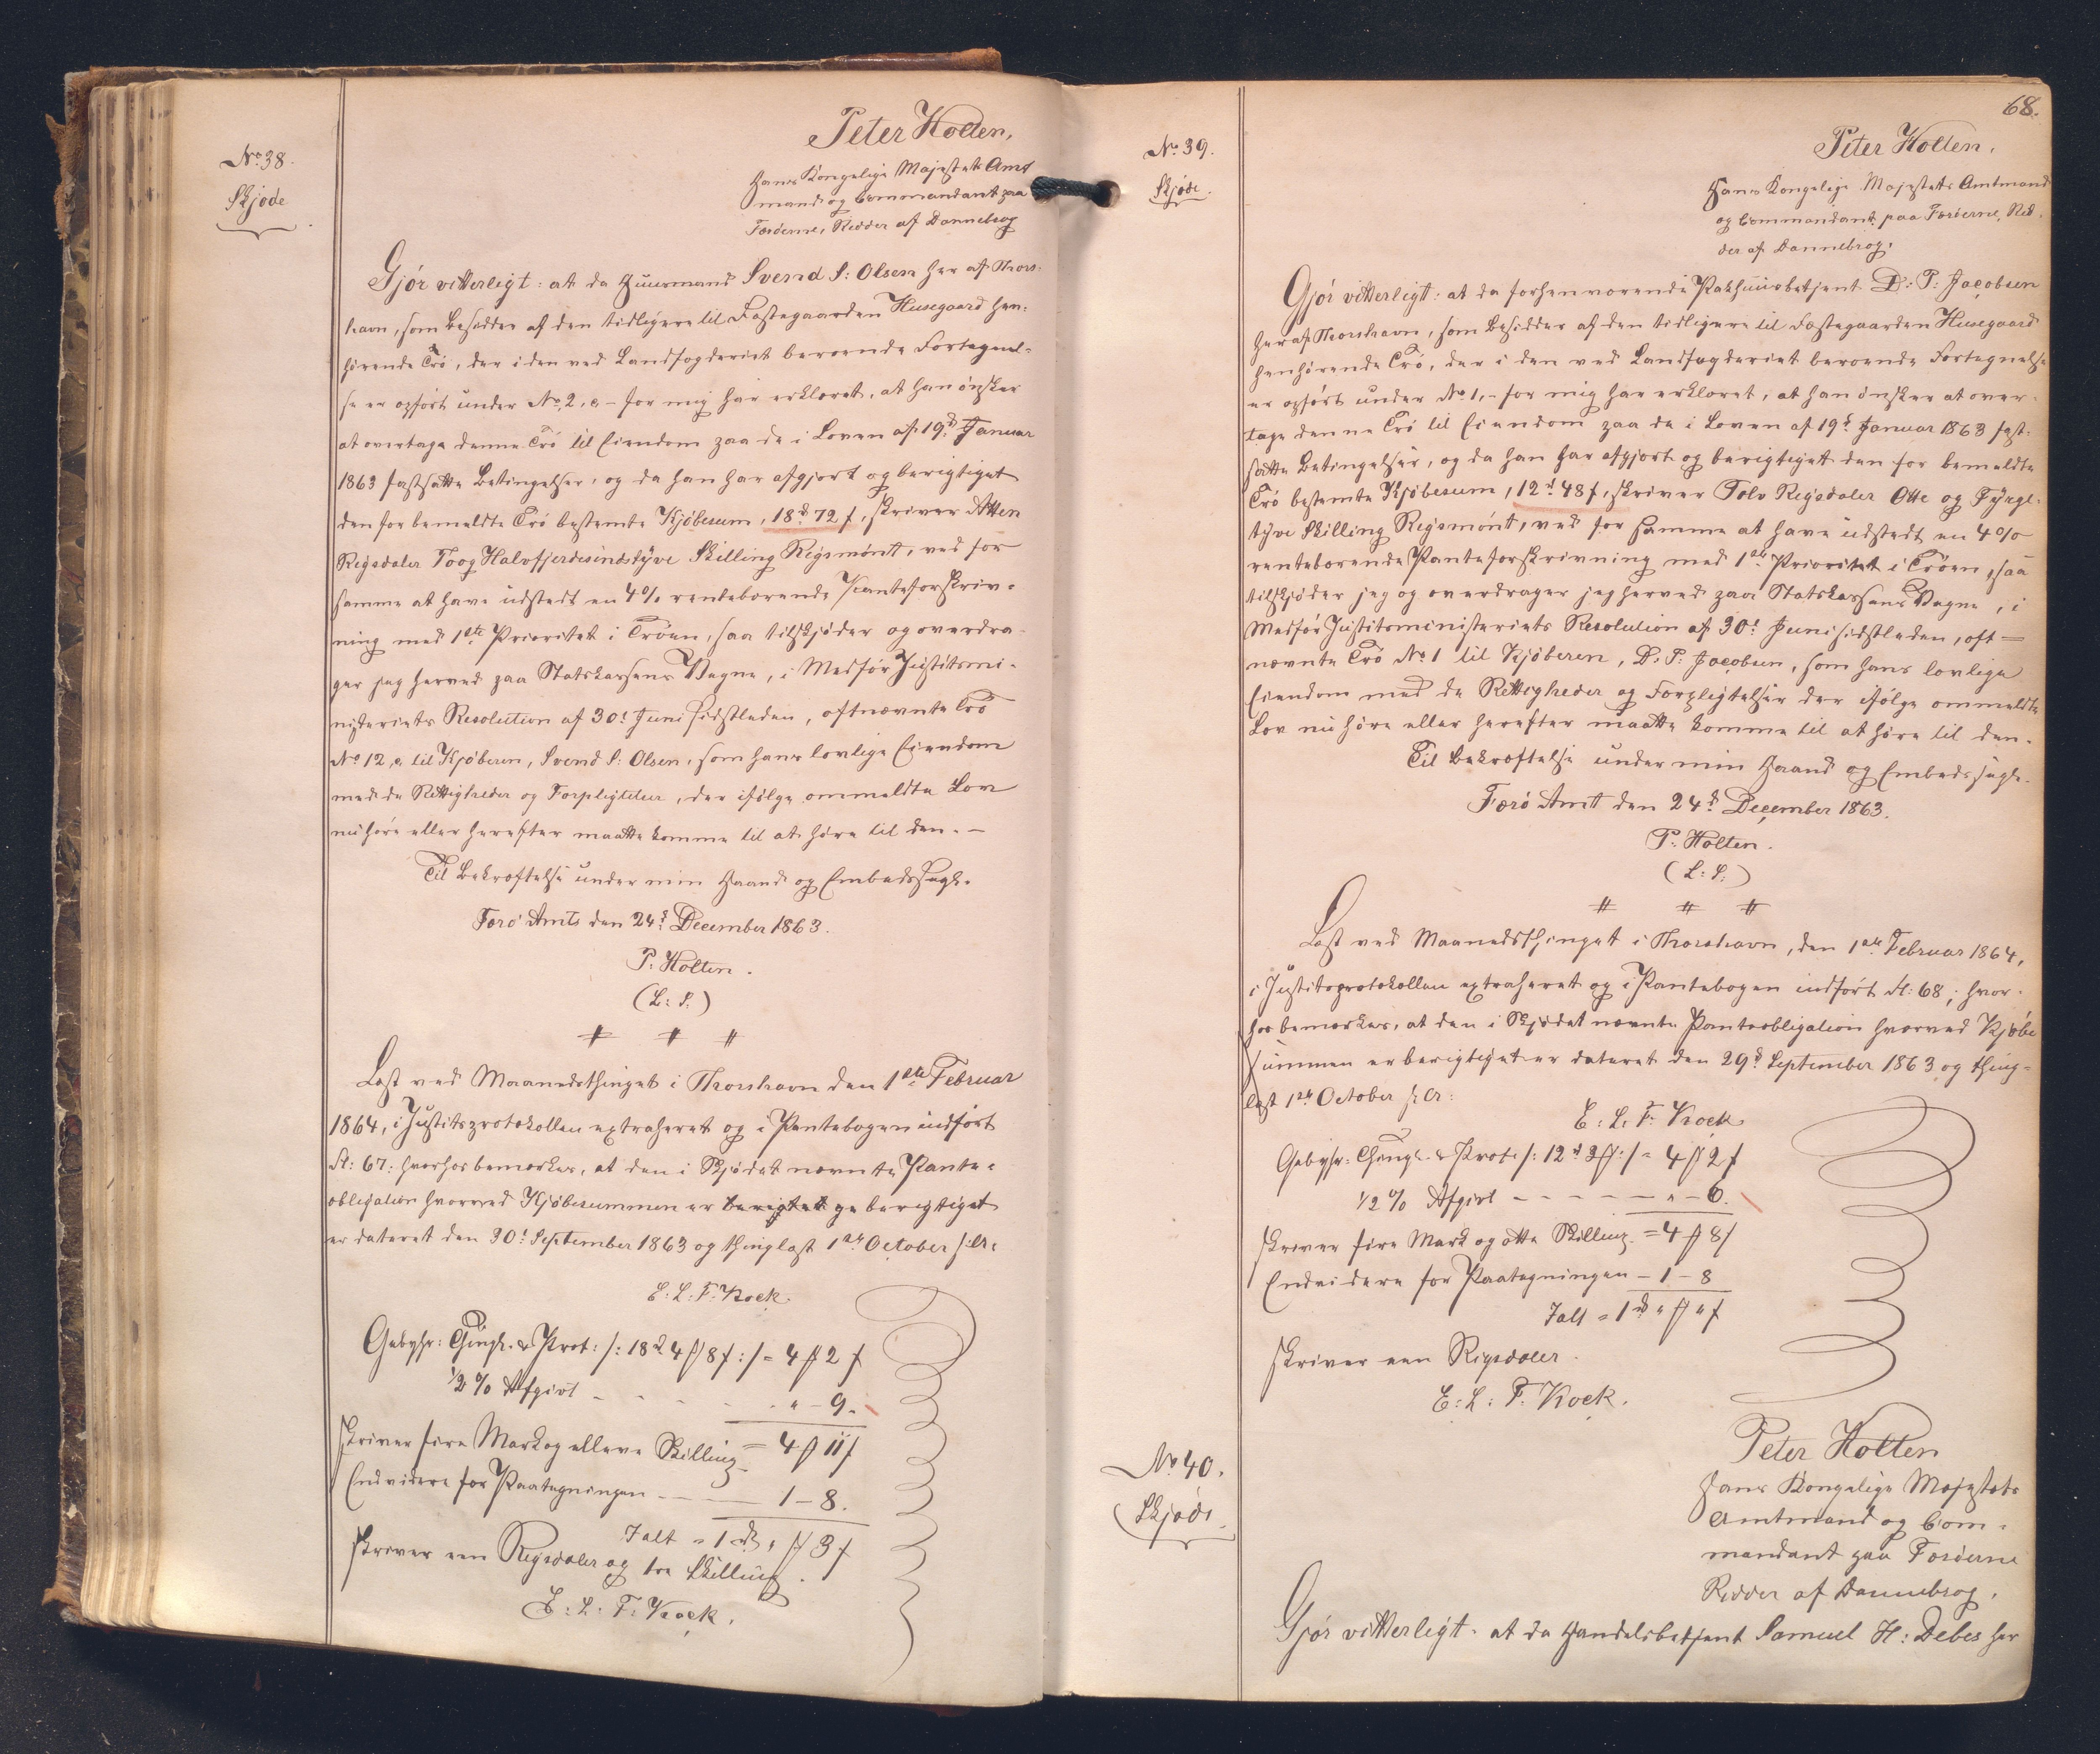 No. 38.
Skjøde
Peter Holten,
Hans Kongelige Majestets Amt
mand og Commandant paa
Færøerne, Ridder af Dannebrog
Gjør vitterligt: at da Huusmand Svend S: Olsen her af Thors-
havn, som besidder af den tidligere til Fæstegaarden Husegaard hen-
hørende Trö, der i den ved Landfogderiet beroende Fortegnel-
se er opført under No. 2, c, - for mig har erklæret, at han ønsker
at overtage denne Trö til Eiendom paa de i Loven af 19d Januar
1863 fastsatte Betingelser, og da han har afgjort og berigtiget
den for bemeldte Trö bestemte Kjøbesum, 18rd 72 s, skriver Atten
Rigsdaler To og Halvfjerdesindstyve Skilling Rigsmønt, ved for
samme at have udstedt en 4% rentebærende Panteforskriv-
ning med 1ste Prioritet i Tröen, saa tilskjøder og overdra-
ger jeg herved paa Statskassens Vegne, i Medför Justitsmi-
nisteriets Resolution af 30d Juni sidstleden, oftnævnte Trö
No 12 c, til Kjøberen, Svend S: Olsen, som hans lovlige Eiendom
med de Rettigheder og Forpligtelser, der ifølge ommeldte Lov
nu høre eller herefter maatte komme til at høre til den. -
Til Bekræftelse under min Haand og Embedssegl.
Færø Amt den 24d December 1863.
P. Holten.
(L: S.)
# # #
Læst ved Maanedsthinget i Thorshavn den 1ste Februar
1864, i Justitsprotokollen extraheret og i Pantebogen indført
Fl: 67: hvorhos bemærkes, at den i Skjødet nævnte Pante-
obligation hvorved Kjøbesummen er berigtet ge berigtiget
er dateret den 30d September 1863 og thinglæst 1ste October s: A:
E: L: F: Kock.
Gebyhr: Thingl. & Prot: /: 18rd 4 ß 8 s :/ = 4 ß 2 s
1/2 % Afgivt - - - - - " - 9.
skriver fire Mark og elleve Skilling = 4 ß 11 s
Endvidere for Paategningen - - - 1 - 8.
Ialt = 1 rd " ß 3 s
skriver een Rigsdaler og tre Skilling.
E: L: F: Kock.
68.
No. 39.
Skjøde.
Peter Holten,
Hans Kongelige Majestets Amtmand
og Commandant paa Færøerne, Rid-
der af Dannebrog,
Gjør vitterligt: at da forhenværende Pakhuusbetjent D: P: Jacobsen
her af Thorshavn, som besidder af den tidligere til Fæstegaarden Husegaard
henhørende Trö, der i den ved Landfogderiet beroende Fortegnelse
er opført under No 1, - for mig har erklæret, at han ønsker at over-
tage denne Trö til Eiendom paa de i Loven af 19d Januar 1863 fast-
satte Betingelser, og da han har afgjort og berigtiget den for bemeldte
Trö bestemte Kjøbesum, 12rd 48 s, skriver Tolv Rigsdaler Otte og Fyrge-
tyve Skilling Rigsmønt, ved for samme at have udstedt en 4%
rentebærende Panteforskrivning med 1ste Prioritet i Tröen, saa
tilskjøder jeg og overdrager jeg herved paa Statskassens Vegne, i
Medför Justitsministeriets Resolution af 30d Juni sidstleden, oft-
nævnte Trö No 1 til Kjøberen, D: P: Jacobsen, som hans lovlige
Eiendom med de Rettigheder og Forpligtelser der ifølge ommeldte
Lov nu høre eller herefter maatte komme til at høre til den.
Til Bekræftelse under min Haand og Embedssegl.
Færø Amt den 24d December 1863.
P. Holten.
(L: S:)
# # #
Læst ved Maanedsthinget i Thorshavn, den 1ste Februar 1864,
i Justitsprotokollen extraheret og i Pantebogen indført Fl: 68; hvor-
hos bemærkes, at den i Skjødet nævnte Panteobligation hvorved Kjøbe
summen er berigtiget er dateret den 29d September 1863 og thing-
læst 1ste October s: A:
E: L: F: Kock
Gebyhr: Thingl. & Prot: /: 12rd 3 ß :/ = 4 ß 2 s
1/2 % Afgivt - - - - - " - 6.
skriver fire Mark og otte Skilling = 4 ß 8 s
Endvidere for Paategningen - 1 - 8
Ialt = 1 rd " ß " s
skriver een Rigsdaler.
E: L: F: Kock.
No. 40.
Skjøde.
Peter Holten
Hans Kongelige Majestets
Amtmand og Com-
mandant paa Færøerne
Ridder af Dannebrog,
Gjør vitterligt: at da Handelsbetjent Samuel H: Debes her